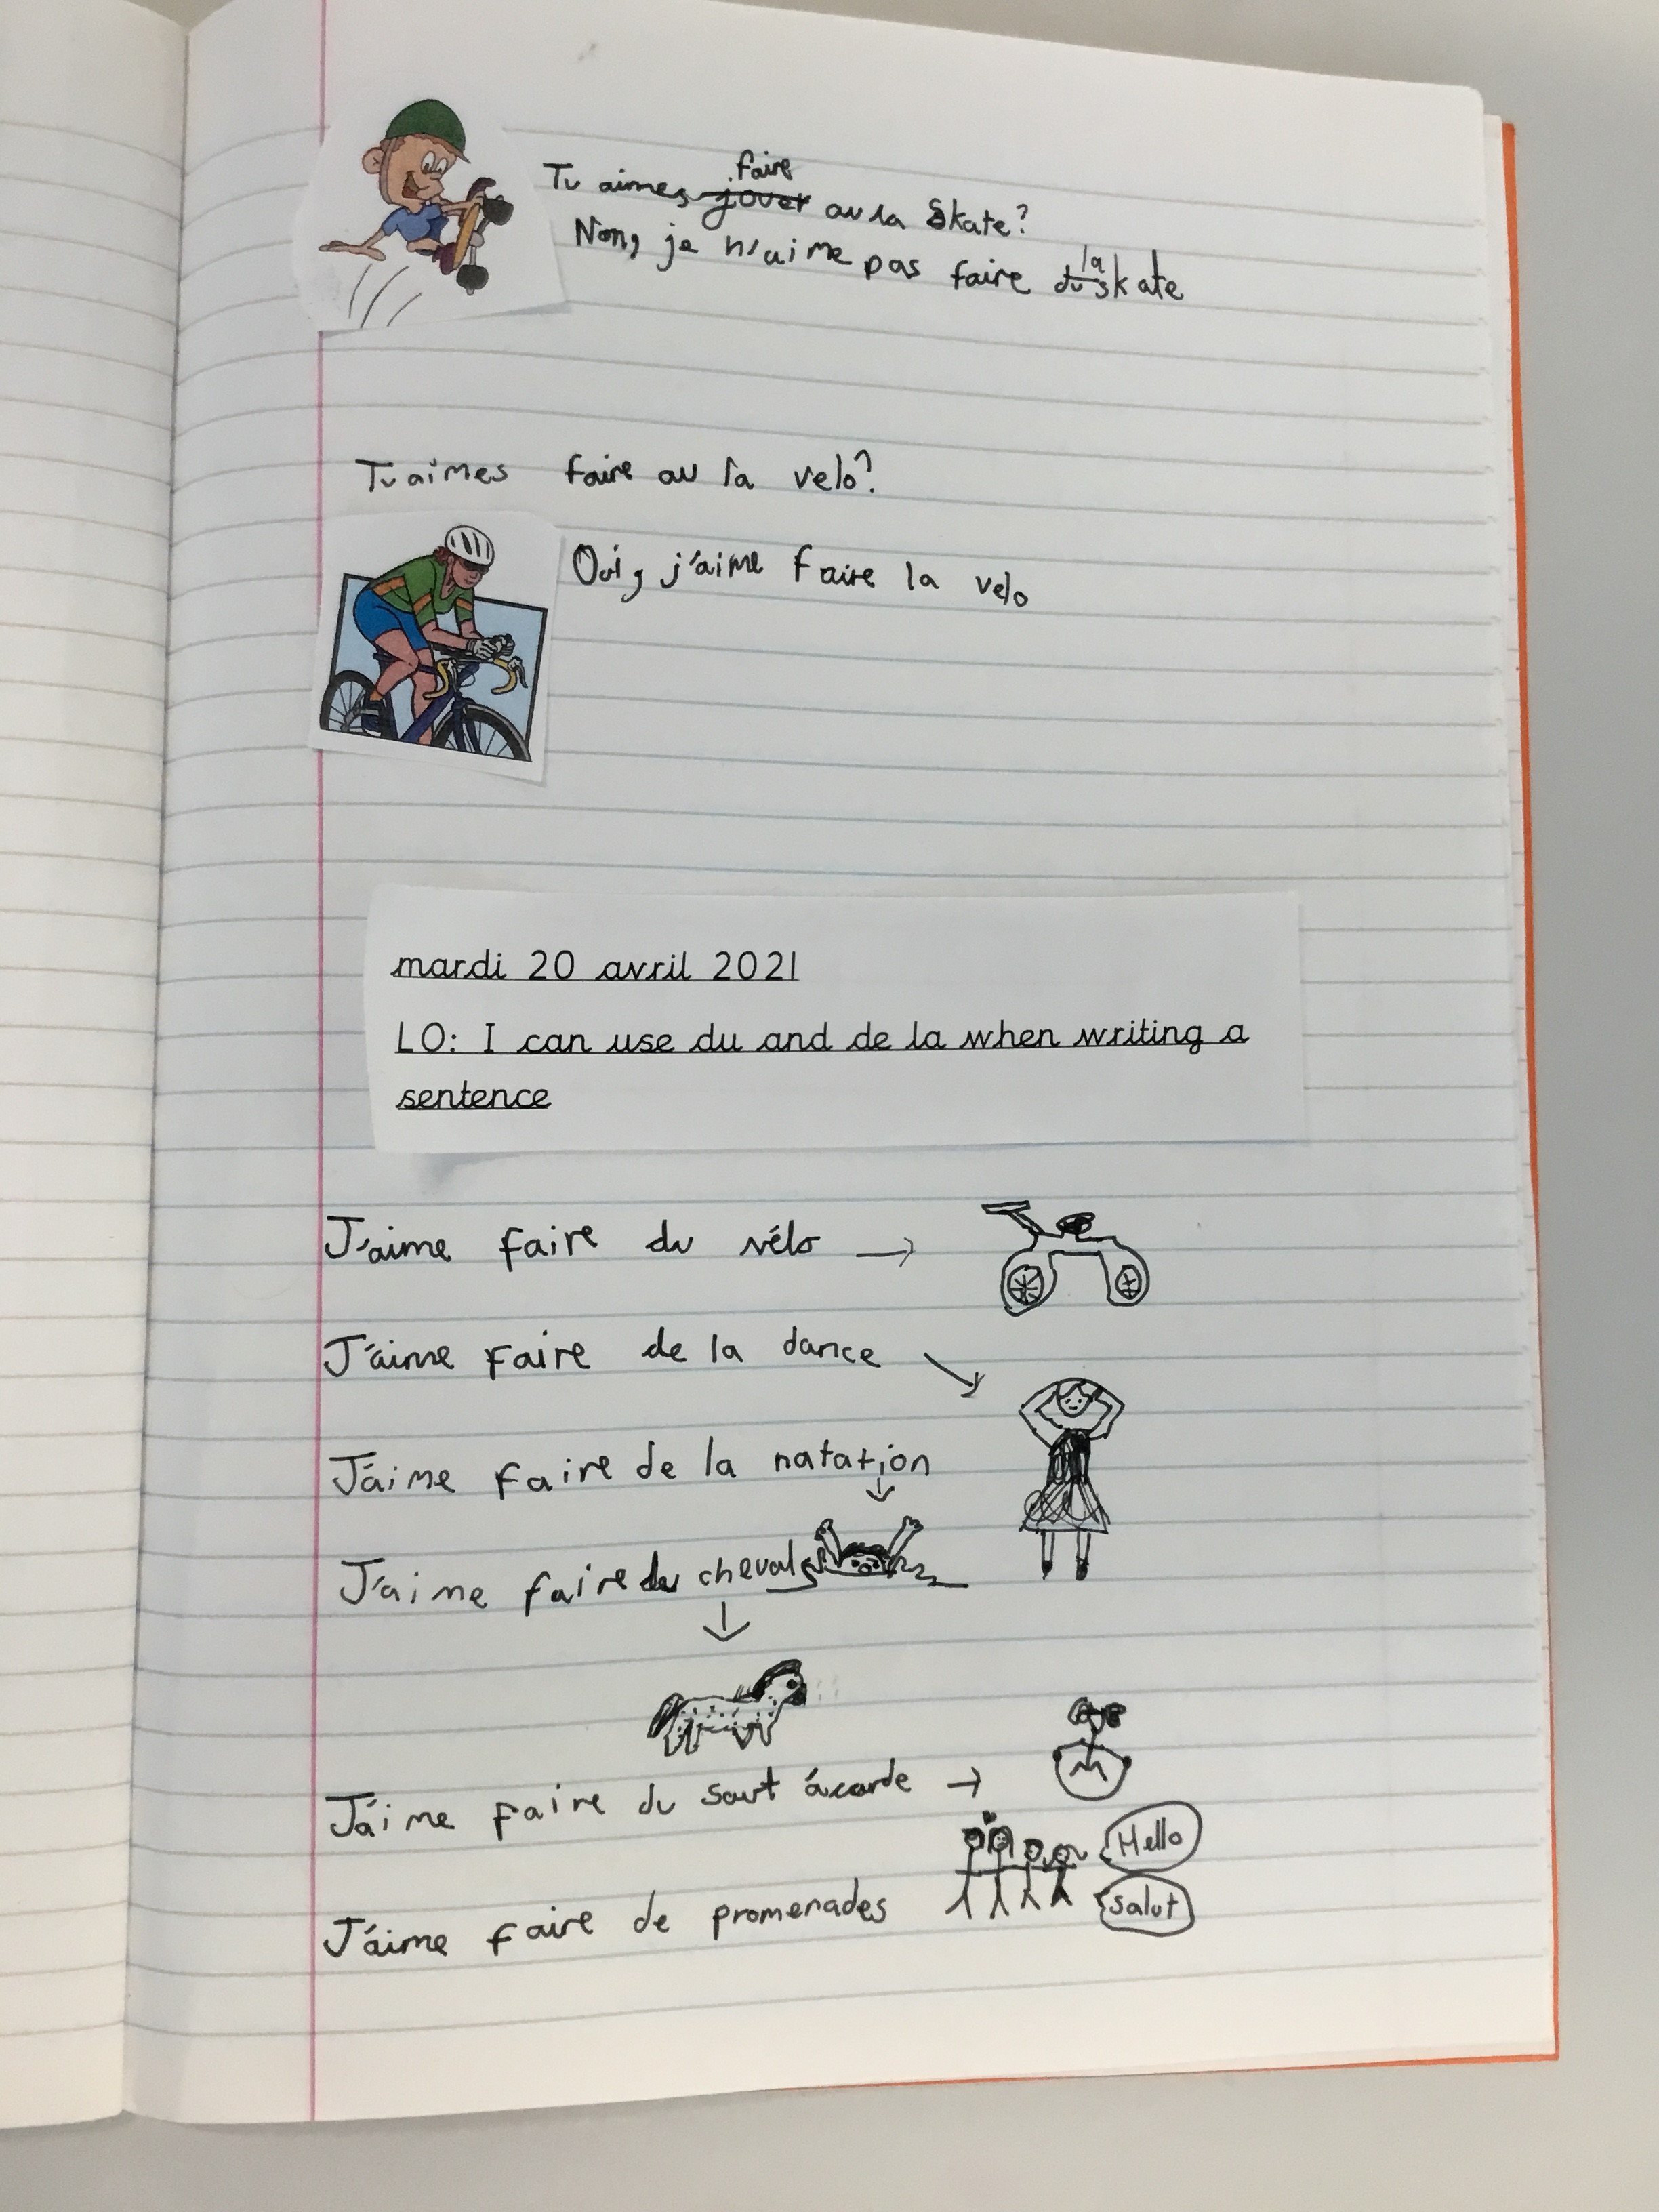 Tu aimes jouer faire au la skate?
Non, je n'aime pas faire du la skate
Tu aimes faire au la velo?
Oui, j'aime faire la velo
mardi 20 avril 2021
LO: I can use du and de la when writing a
sentence
J'aime faire du vélo →
J'aime faire de la dance
J'aime faire de la natation
J'aime faire du cheval
J'aime faire du saut ácorde →
Hello
J'aime faire de promenades
Salut